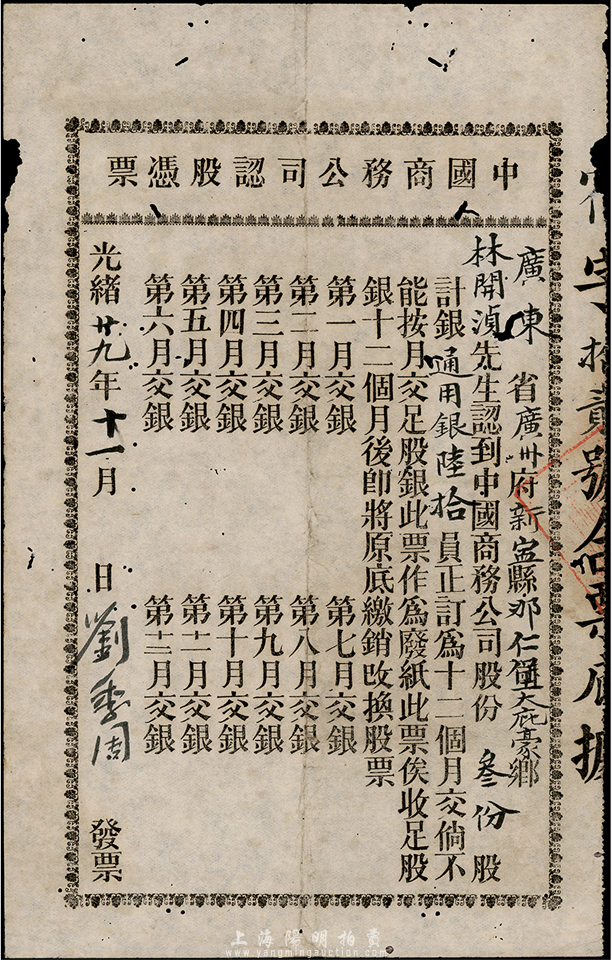 中國商務公司認股憑票
字拾貳號
廣東省廣州府新寍縣那仁堡大庇豪鄉
林開湞先生認到中國商務公司股份叁份股
計銀通用銀陸拾員正訂爲十二個月交倘不
能按月交足股銀此票作爲廢紙此票俟收足股
銀十二個月後即將原底繳銷改換股票
第一月交銀 第七月交銀
第二月交銀 第八月交銀
第三月交銀 第九月交銀
第四月交銀 第十月交銀
第五月交銀 第十一月交銀
第六月交銀 第十二月交銀
光緒廿九年十一月 日劉周 發票
上海陽明拍賣
www.yangmingauction.com